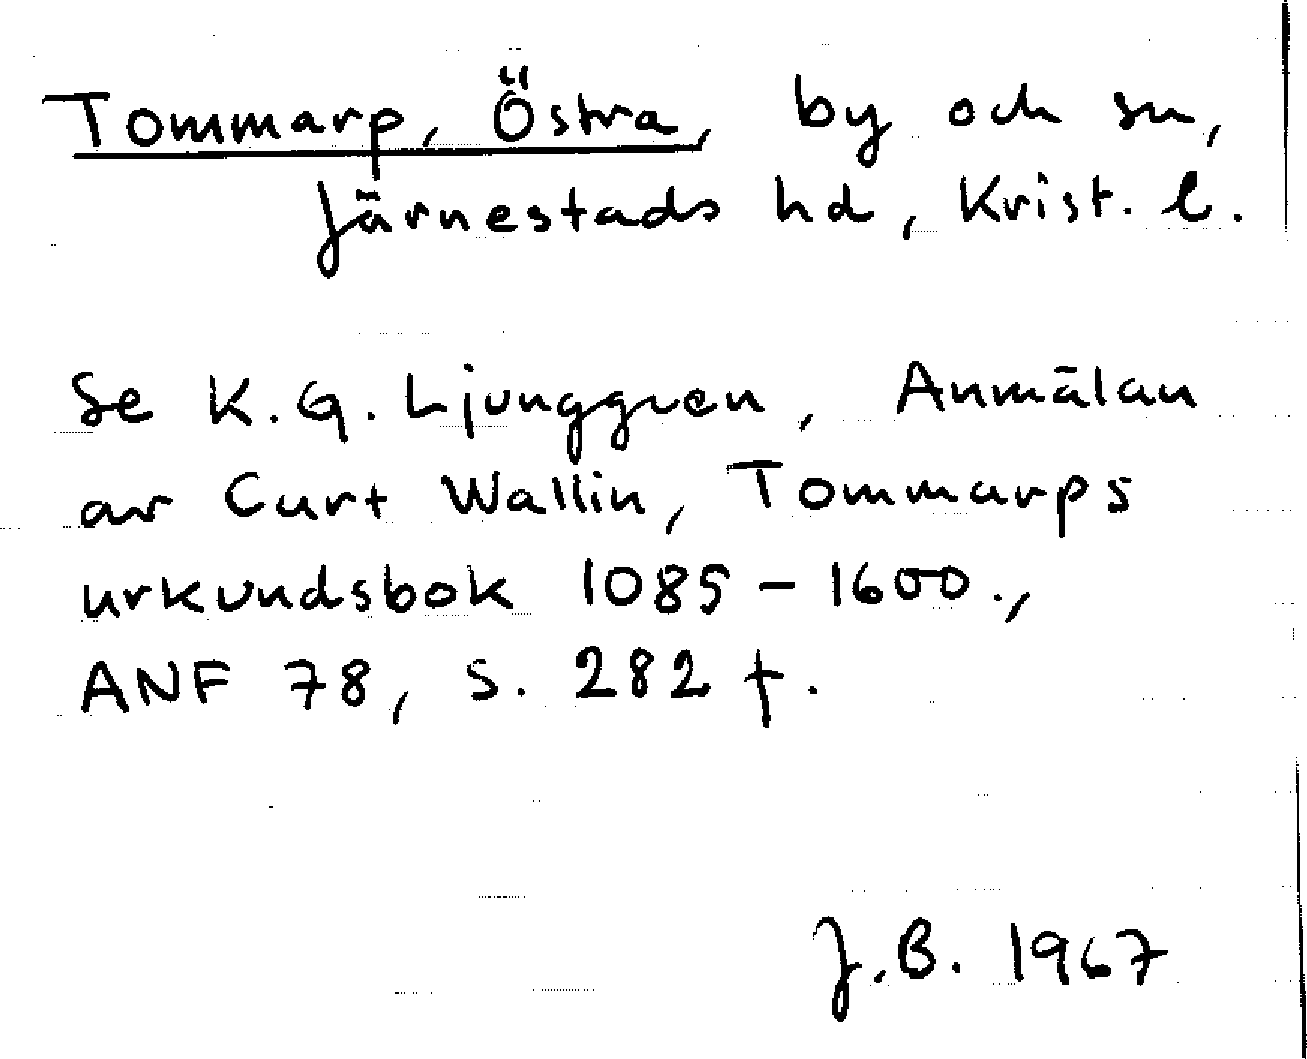 Tommarp, Östra, by och sn,
Järnestads hd, Krist. l.
Se K.G. Ljunggren, Anmälan
av Curt Wallin, Tommarps
urkundsbok 1085 - 1600.,
ANF 78, s. 282 f.
J.B. 1967